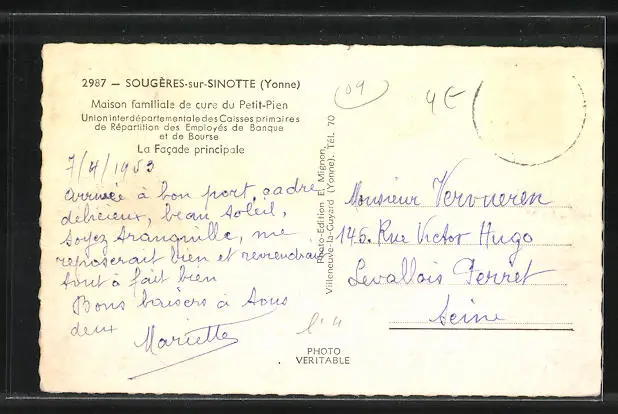 2987 — SOUGÈRES-sur-SINOTTE (Yonne)
Maison familiale de cure du Petit-Pien
Union interdépartementale des Caisses primaires
de Répartition des Employés de Banque
et de Bourse
La Façade principale
7/4/1953
arrivée à bon port, cadre
délicieux, beau soleil,
soyez tranquille, me
reposerait bien et reviendrai
tout à fait bien
Bons baisers à tous
deux
Mariette
Photo-Edition E. Mignon,
Villeneuve-la-Guyard (Yonne). Tél. 70
09
4E
Monsieur Vervueren
145. Rue Victor Hugo
Levallois Perret
Seine
PHOTO
VERITABLE